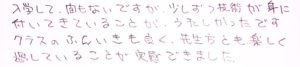 入学して、間もないですが、少しずつ技術が身に
付いてきていることが、うれしかったです
クラスのふんいきも良く、先生方とも楽しく
過していることが実感できました。